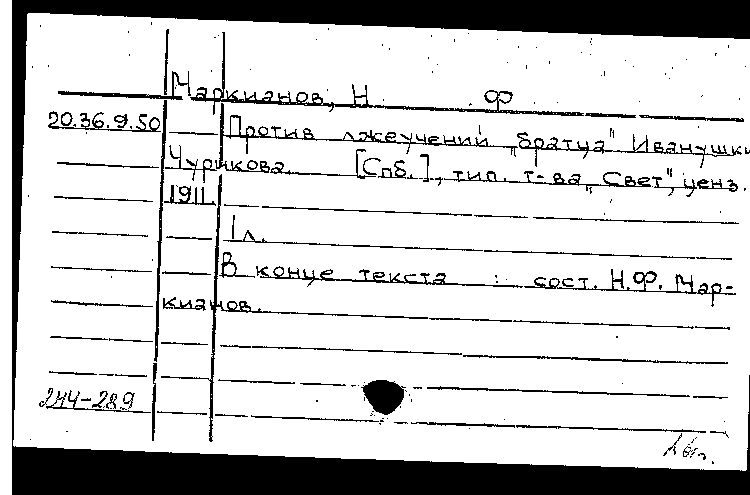 Маркианов, Н. Ф
20.36.9.50 Против лжеучений „братца" Иванушки
Чурикова. [Спб.], тип. т-ва „Свет", ценз.
1911.
1 л.
В конце текста : сост. Н.Ф. Мар-
кианов.
244-289